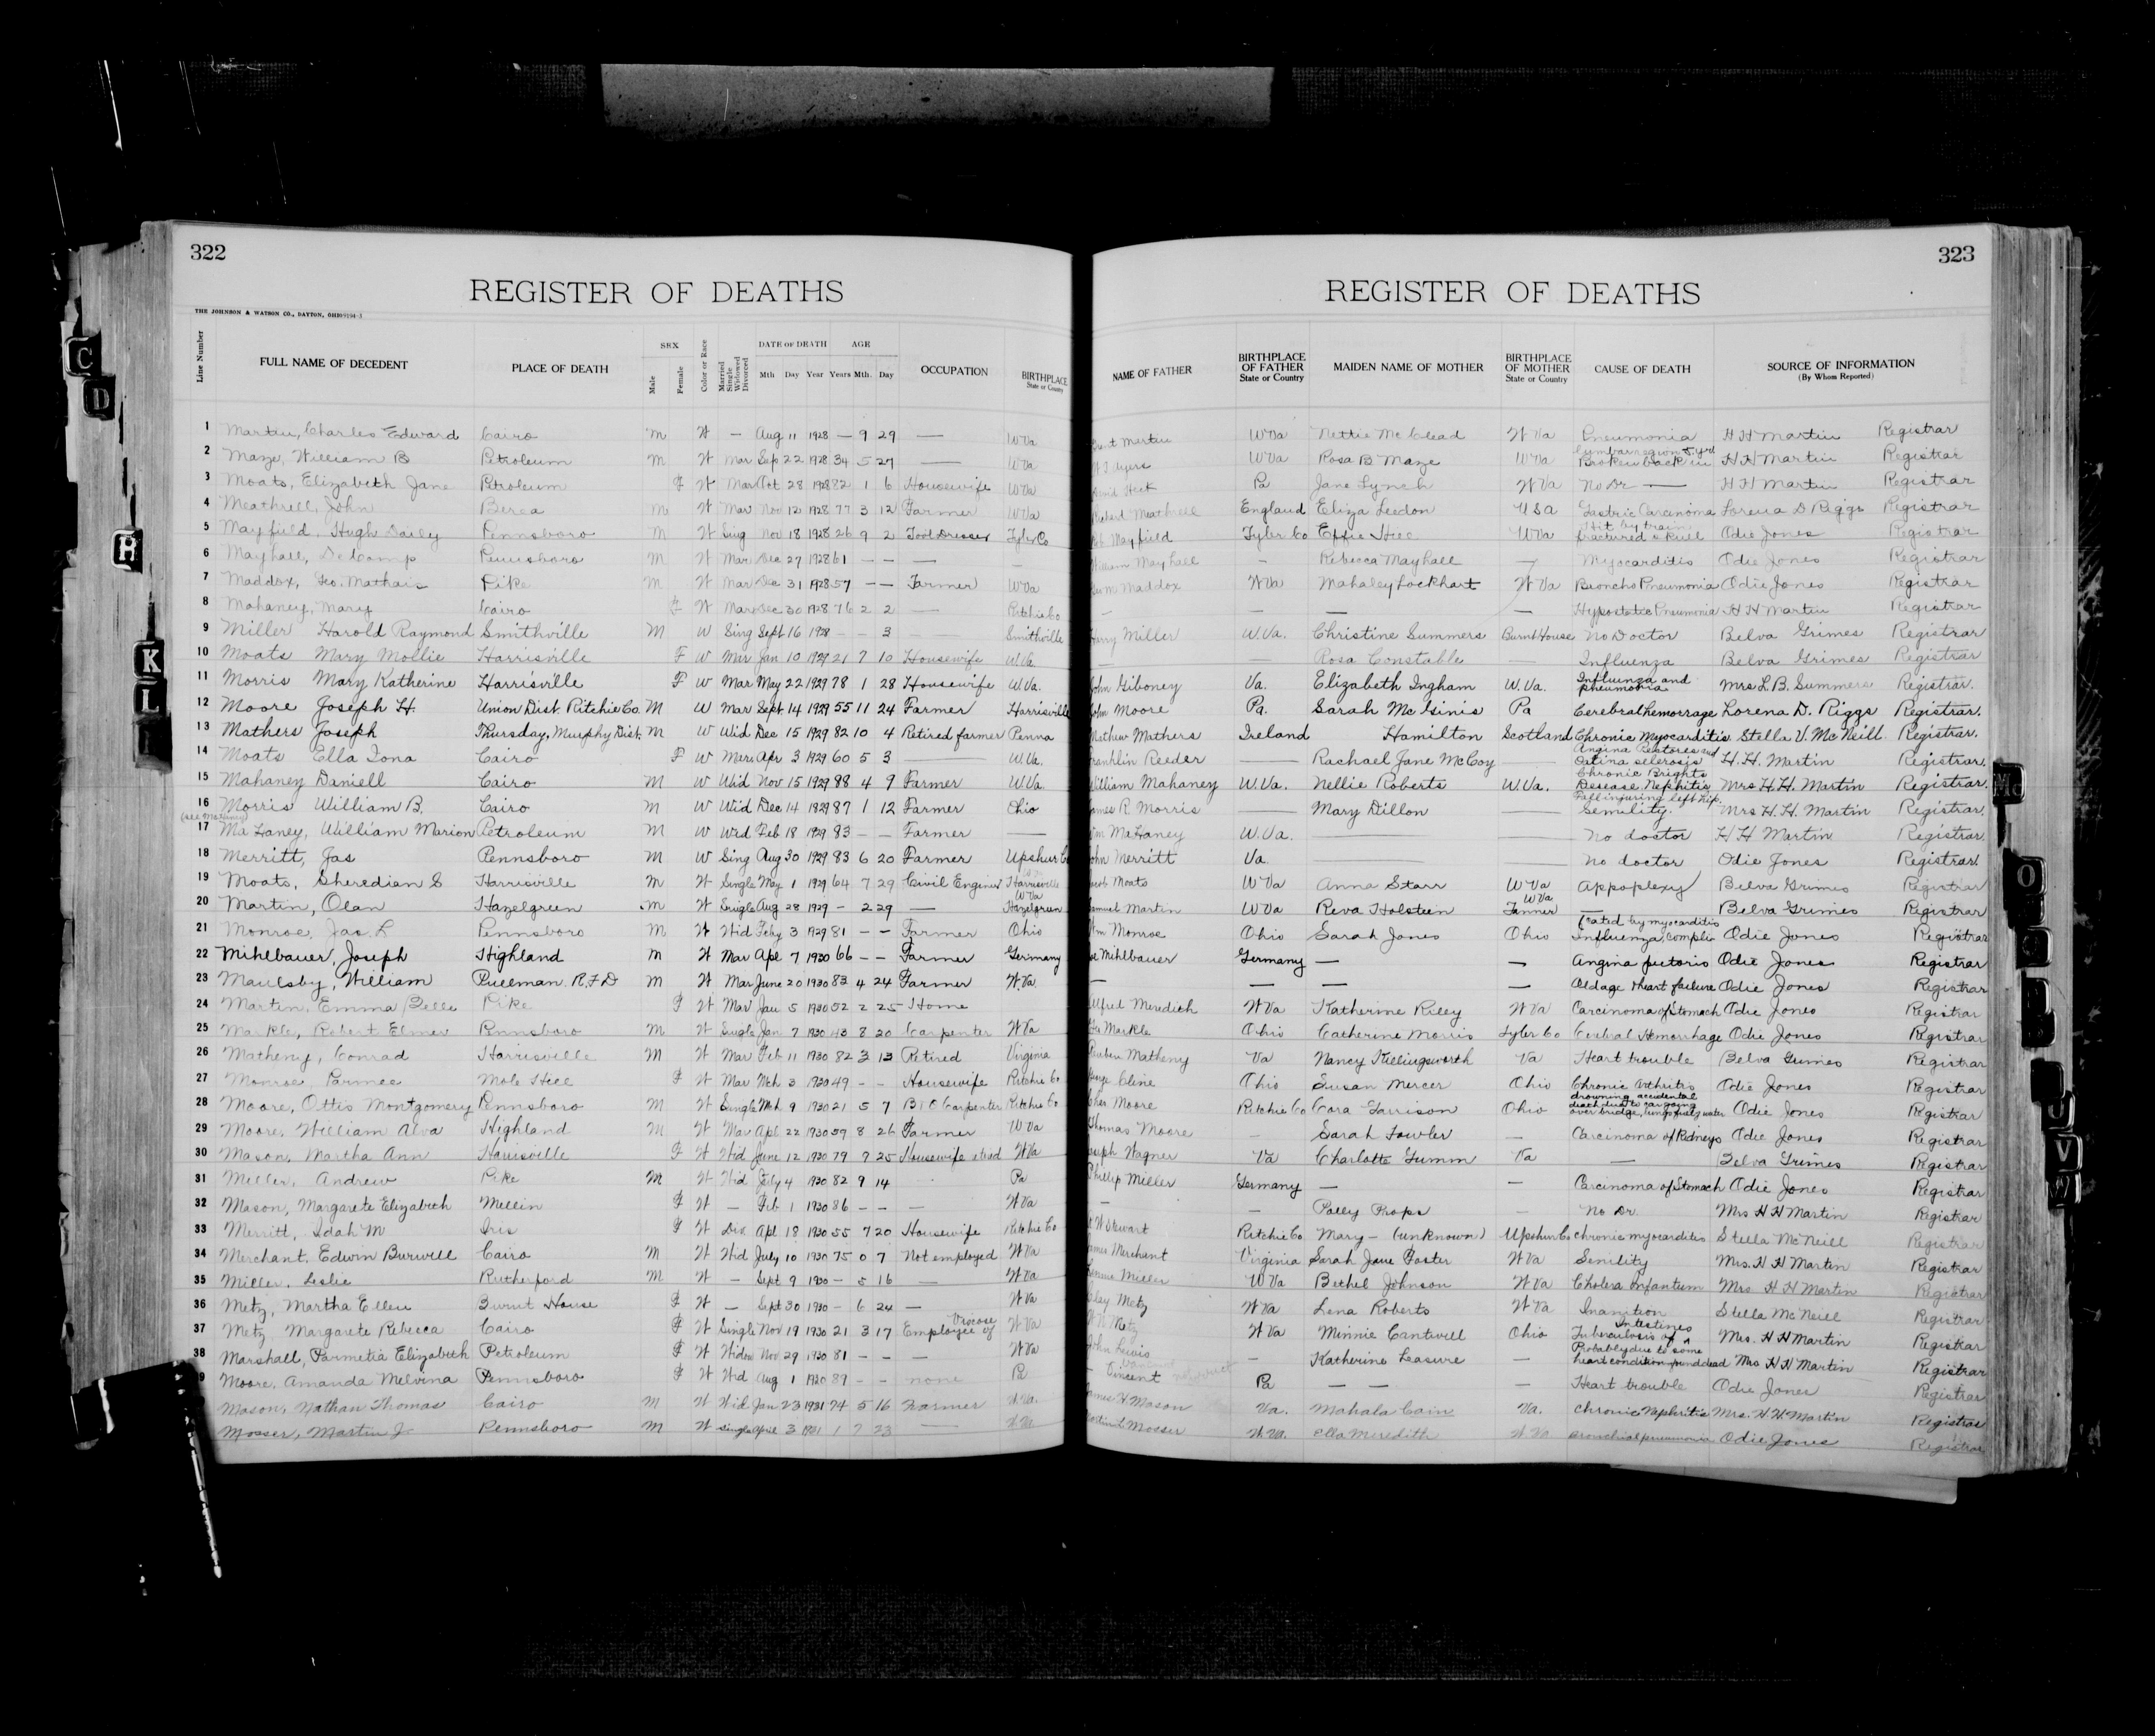 322
REGISTER OF DEATHS
THE JOHNSON & WATSON CO., DAYTON, OHIO
Line Number FULL NAME OF DECEDENT PLACE OF DEATH SEX Male Female Color or Race Married Single Widowed Divorced DATE OF DEATH Mth Day Year AGE Years Mth. Day OCCUPATION BIRTHPLACE State or Country
323
REGISTER OF DEATHS
NAME OF FATHER BIRTHPLACE OF FATHER State or Country MAIDEN NAME OF MOTHER BIRTHPLACE OF MOTHER State or Country CAUSE OF DEATH SOURCE OF INFORMATION (By Whom Reported)
1 Martin, Charles Edward Cairo M W — Aug 11 1928 — 9 29 — W Va Martin W Va Nettie McClead W Va Pneumonia H H Martin Registrar
2 Maze, William B Petroleum M W Mar Sep 22 1928 34 5 27 — W Va W Va Rosa B Maze W Va Broken back in H H Martin Registrar
3 Moats, Elizabeth Jane Petroleum F W Mar Oct 28 1928 82 1 6 Housewife W Va Pa Jane Lynch W Va No Dr — H H Martin Registrar
4 Meathrell, John Berea M W Mar Nov 12 1928 77 3 12 Farmer W Va Meathrell England Eliza U S A Gastric Carcinoma Lorena D Riggs Registrar
5 Mayfield, Hugh Daily Pennsboro M W Sing Nov 18 1928 26 9 2 Tool Dresser Tyler Co Mayfield Tyler Co Effie Hill W Va Hit by train fractured skull Odie Jones Registrar
6 Mayhall, Delcamp Pennsboro M W Mar Dec 27 1928 61 — — — — William Mayhall — Rebecca Mayhall — Myocarditis Odie Jones Registrar
7 Maddox, Geo. Mathais Pike M W Mar Dec 31 1928 57 — — Farmer W Va Maddox W Va Mahaley Lockhart W Va Broncho Pneumonia Odie Jones Registrar
8 Mahaney, Mary Cairo F W Mar Dec 30 1928 76 2 2 — Ritchie Co — — — — Hypostatic Pneumonia H H Martin Registrar
9 Miller Harold Raymond Smithville M W Sing Sept 16 1928 — — 3 Smithville Harry Miller W. Va. Christine Summers Burnt House No Doctor Belva Grimes Registrar
10 Moats Mary Mollie Harrisville F W Mar Jan 10 1929 21 7 10 Housewife W. Va. — — Rosa Constable — Influenza Belva Grimes Registrar
11 Morris Mary Katherine Harrisville F W Mar May 22 1929 78 1 28 Housewife W. Va. John Giboney Va. Elizabeth Ingham W. Va. Influenza and pneumonia Mrs L. B. Summers Registrar.
12 Moore Joseph H. Union Dist. Ritchie Co. M W Mar Sept. 14 1929 55 11 24 Farmer Harrisville John Moore Pa. Sarah McGinis Pa Cerebral hemorrage Lorena D. Riggs Registrar.
13 Mathers Joseph Thursday, Murphy Dist. M W Wid Dec 15 1929 82 10 4 Retired farmer Penna Mathew Mathers Ireland Hamilton Scotland Chronic Myocarditis Stella V. McNeill Registrar.
14 Moats Ella Iona Cairo F W Mar. Apr 3 1929 60 5 3 — W. Va. Franklin Reeder — Rachael Jane McCoy — Angina Pectores and H. H. Martin Registrar.
15 Mahaney Daniell Cairo M W Wid Nov 15 1929 88 4 9 Farmer W. Va. William Mahaney W. Va. Nellie Roberts W. Va. Chronic Brights Disease Nephitis Mrs H. H. Martin Registrar.
16 Morris William B. Cairo M W Wid Dec 14 1929 87 1 12 Farmer Ohio James R. Morris — Mary Dillon — Fall injuring left hip. Senility. Mrs H. H. Martin Registrar.
17 (see Mahaney) MaHaney, William Marion Petroleum M W Wed Feb 18 1929 83 — — Farmer — Wm MaHaney W. Va. — — No doctor H H Martin Registrar.
18 Merritt, Jas Pennsboro M W Sing Aug 30 1929 83 6 20 Farmer Upshur Co John Merritt Va. — — no doctor Odie Jones Registrar.
19 Moats, Sheredian S Harrisville M W Single May 1 1929 64 7 29 Civil Enginer Harrisville Jacob Moats W Va Anna Starr W Va Appoplexy Belva Grimes Registrar
20 Martin, Olan Hazelgreen M W Single Aug 28 1929 — 2 29 — W Va Hazelgreen Samuel Martin W Va Reva Holstein W Va Tanner — Belva Grimes Registrar
21 Monroe, Jas. L Pennsboro M W Wid Feby 3 1929 81 — — Farmer Ohio Wm Monroe Ohio Sarah Jones Ohio Influenza, complicated by myocarditis Odie Jones Registrar
22 Mihlbauer, Joseph Highland M W Mar Apl 7 1930 66 — — Farmer Germany Mihlbauer Germany — — Angina pectoris Odie Jones Registrar
23 Maulsby, William Pullman R.F.D M W Mar June 20 1930 83 4 24 Farmer W. Va — — — — Old age Heart failure Odie Jones Registrar
24 Martin, Emma Belle Pike F W Mar Jan 5 1930 52 2 25 Home Alfred Meredith W Va Katherine Riley W Va Carcinoma of Stomach Odie Jones Registrar
25 Markle, Robert Elmer Pennsboro M W Single Jan 7 1930 43 8 20 Carpenter W Va Markle Ohio Catherine Morris Tyler Co Cerebral Hemorrhage Odie Jones Registrar
26 Matheny, Conrad Harrisville M W Mar Feb 11 1930 82 3 13 Retired Virginia Matheny Va Nancy Killingsworth Va Heart trouble Belva Grimes Registrar
27 Monroe, Permee Mole Hill F W Mar Mch 3 1930 49 — — Housewife Ritchie Co Cline Ohio Susan Mercer Ohio Chronic Arthritis Odie Jones Registrar
28 Moore, Ottis Montgomery Pennsboro M W Single Mch 9 1930 21 5 7 B&O Carpenter Ritchie Co Moore Ritchie Co Cora Garrison Ohio drowning accidental death due to car going over bridge, lungs full of water Odie Jones Registrar
29 Moore, William Alva Highland M W Mar Apl 22 1930 59 8 26 Farmer W Va Thomas Moore — Sarah Fowler — Carcinoma of Kidneys Odie Jones Registrar
30 Mason, Martha Ann Harrisville F W Wid June 12 1930 79 7 25 Housewife W Va Joseph Wagner Va Charlotte Gumm Va — Belva Grimes Registrar
31 Miller, Andrew Pike M W Wid July 4 1930 82 9 14 Pa Phillip Miller Germany — — Carcinoma of Stomach Odie Jones Registrar
32 Mason, Margarete Elizabeth Mellin F W — Feb 1 1930 86 — — — W Va — — Polly Props — No Dr. Mrs H H Martin Registrar
33 Merritt, Idah M Iris F W Div. Apl 18 1930 55 7 20 Housewife Ritchie Co Stewart Ritchie Co Mary — (unknown) Upshur Co chronic myocarditis Stella McNeill Registrar
34 Merchant, Edwin Burwell Cairo M W Wid July 10 1930 75 0 7 Not employed W Va James Merchant Virginia Sarah Jane Foster W Va Senility Mrs. H H Martin Registrar
35 Miller, Leslie Rutherford M W — Sept 9 1930 — 5 16 — W Va Miller W Va Bethel Johnson W Va Cholera Infantum Mrs H H Martin Registrar
36 Metz, Martha Ellen Burnt House F W — Sept 30 1930 — 6 24 — W Va Metz W Va Lena Roberts W Va Inanition Stella McNeill Registrar
37 Metz Margarete Rebecca Cairo F W Single Nov 19 1930 21 3 17 Employee of Viscose W Va Metz W Va Minnie Cantwell Ohio Tuberculosis of Intestines Mrs. H H Martin Registrar
38 Marshall, Parmetia Elizabeth Petroleum F W Widow Nov 29 1930 81 — — — W Va John Lewis — Katherine Leasure — Probably due to some heart condition found dead Mrs H H Martin Registrar
9 Moore, Amanda Melvina Pennsboro F W Wid Aug 1 1930 89 — — none Pa Vincent Pa — — — Heart trouble Odie Jones Registrar
Mason, Nathan Thomas Cairo M W Wid Jan 23 1931 74 5 16 Farmer W. Va. James H Mason Va. Mahala Cain Va. Chronic Nephritis Mrs. H H Martin Registrar
Mosser, Martin J. Pennsboro M W single April 3 1931 1 7 23 — W Va Mosser W. Va. Ella Meredith W Va Bronchial pneumonia Odie Jones Registrar
C
D
H
K
L
Mc
O
U
V